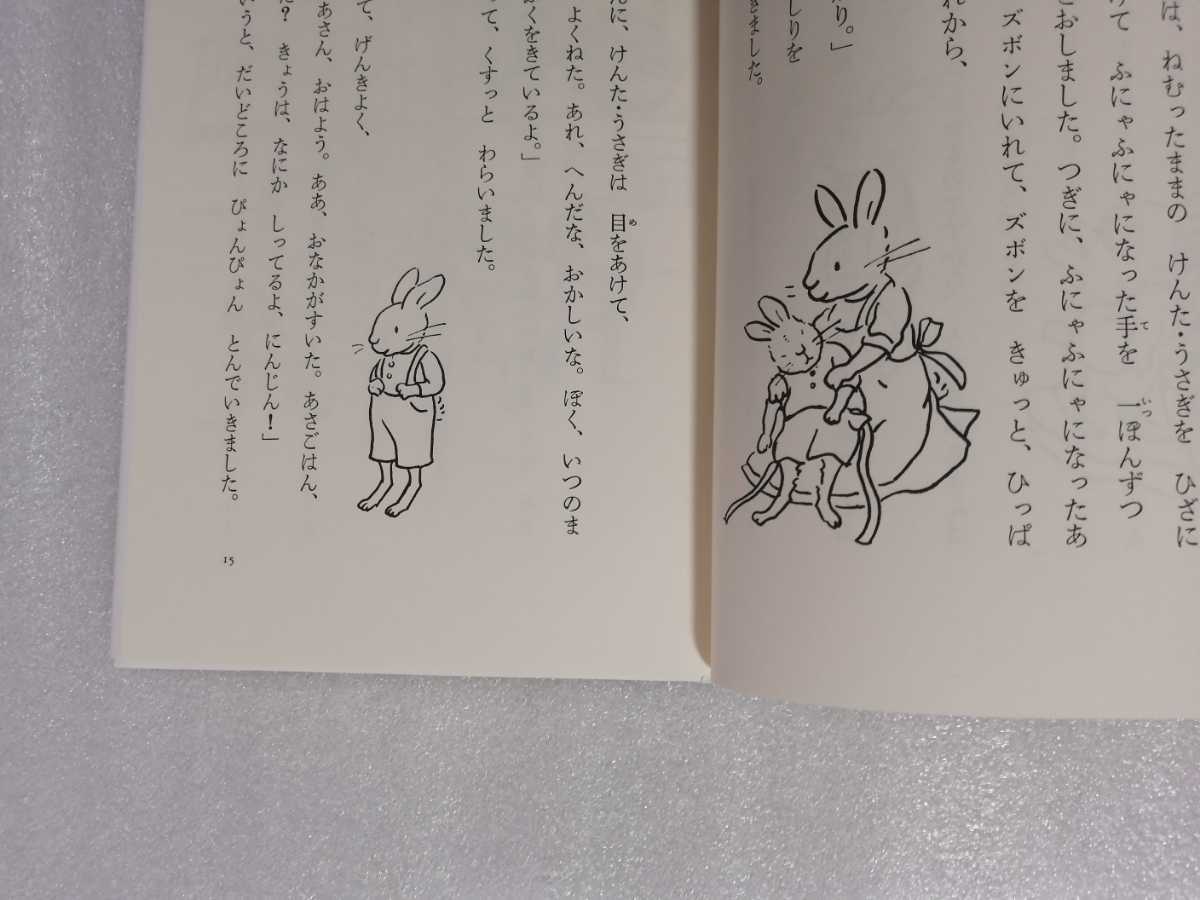 は、ねむったままの けんた・うさぎを ひざに
けて ふにゃふにゃになった手を 一ぽんずつ
とおしました。つぎに、ふにゃふにゃになったあ
ズボンにいれて、ズボンを きゅっと、ひっぱ
れから、
り。」
しりを
きました。
んに、けんた・うさぎは 目をあけて、
よくねた。あれ、へんだな、おかしいな。ぼく、いつのま
くをきているよ。」
って、くすっと わらいました。
て、げんきよく、
あさん、おはよう。ああ、おなかがすいた。あさごはん、
だ? きょうは、なにか しってるよ、にんじん!」
いうと、だいどころに ぴょんぴょん とんでいきました。
15